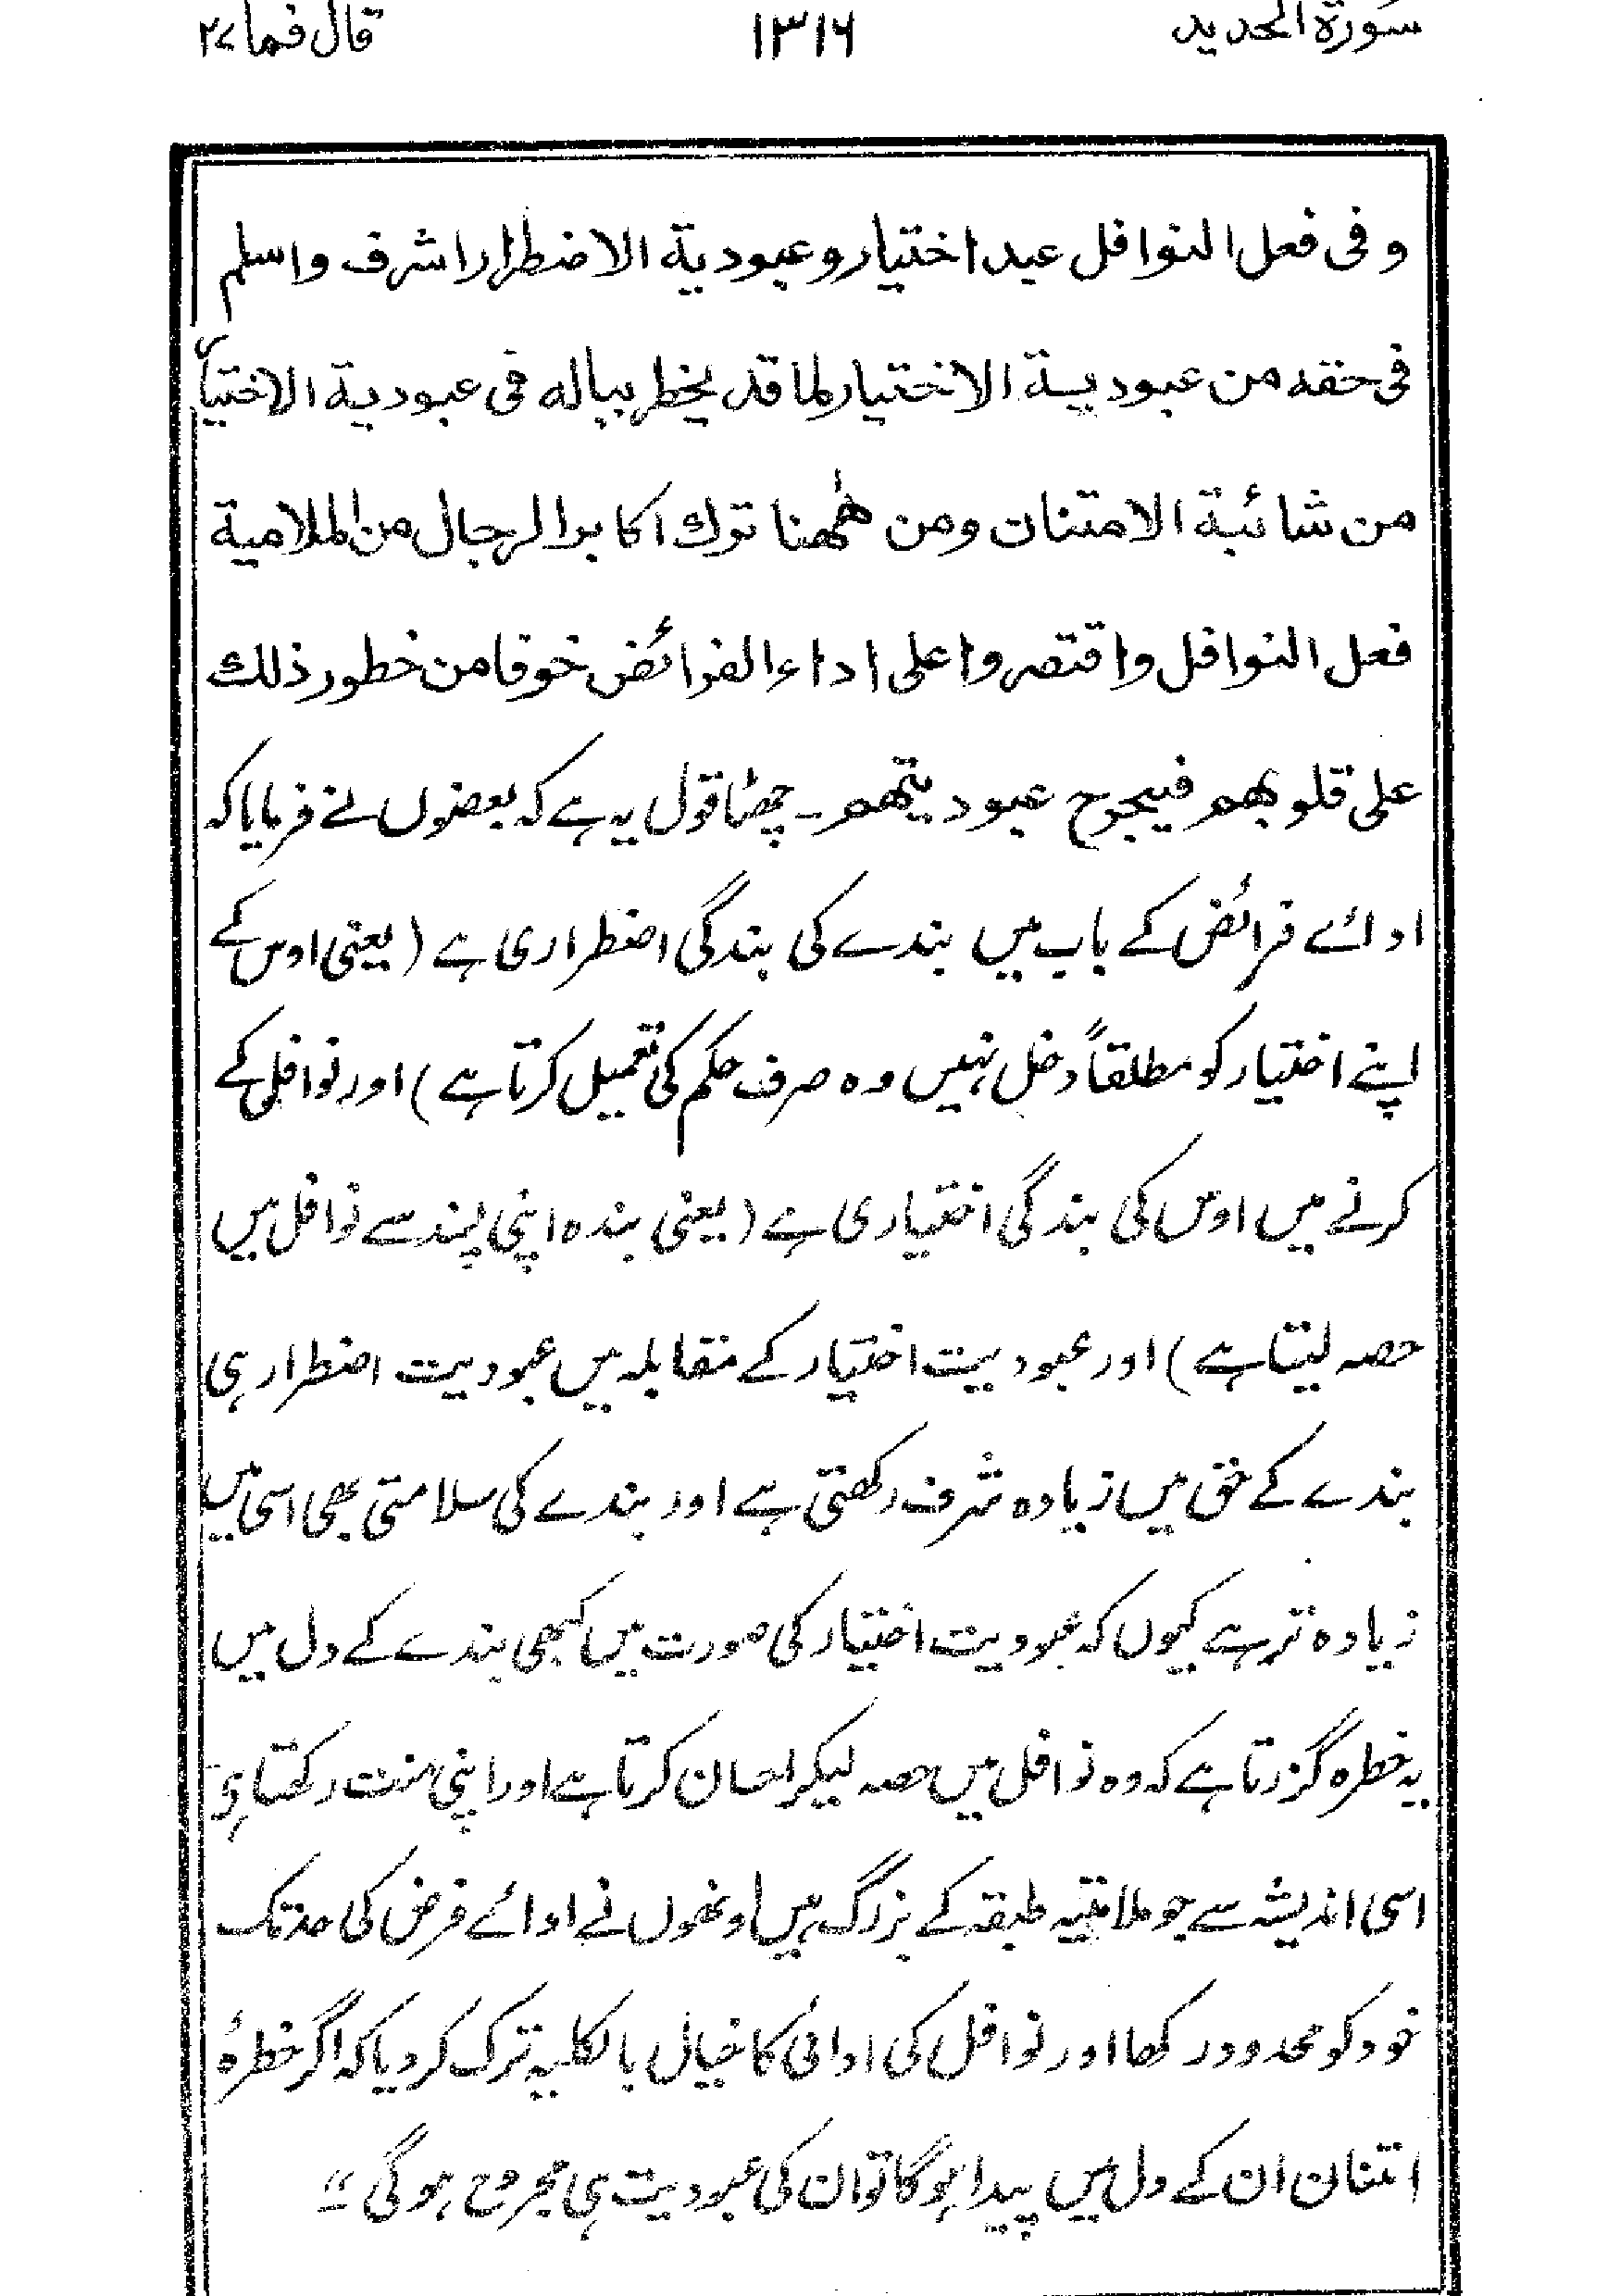 سورة الحديد ۱۳۱۶ قال فما ۲۷
و فی فعل النوافل عبد اختیار و عبودیة الاضطرار اشرف و اسلم
فی حقه من عبودیة الاختیار لما قد یخطر بباله فی عبودیة الاختیار
من شائبة الامتنان ومن ههنا ترك اکابر الرجال من الملامیة
فعل النوافل واقتصروا علی اداء الفرائض خوفا من خطور ذلك
علی قلوبهم فیجرح عبودیتهم ۔ چھٹا قول یہ ہے کہ بعضوں نے فرمایا کہ
ادائے فرائض کے باب میں بندے کی بندگی اضطراری ہے (یعنی اوس کے
اپنے اختیار کو مطلقاً دخل نہیں وہ صرف حکم کی تعمیل کرتا ہے) اور نوافل کے
کرنے میں اوس کی بندگی اختیاری ہے (یعنی بندہ اپنی پسند سے نوافل میں
حصہ لیتا ہے) اور عبودیت اختیار کے مقابلہ میں عبودیت اضطرار ہی
بندے کے حق میں زیادہ شرف رکھتی ہے اور بندے کی سلامتی بھی اسی میں
زیادہ تر ہے کیوں کہ عبودیت اختیار کی صورت میں کبھی بندے کے دل میں
یہ خطرہ گزرتا ہے کہ وہ نوافل میں حصہ لیکر احسان کرتا ہے اور اپنی منت رکھتا ہے
اسی اندیشہ سے جو ملامتیہ طبقہ کے بزرگ ہیں اونھوں نے ادائے فرض کی حد تک
خود کو محدود رکھا اور نوافل کی ادائی کا خیال بالکلیہ ترک کر دیا کہ اگر خطرۂ
امتنان ان کے دل میں پیدا ہو گا تو ان کی عبودیت ہی مجروح ہو گی ؂"